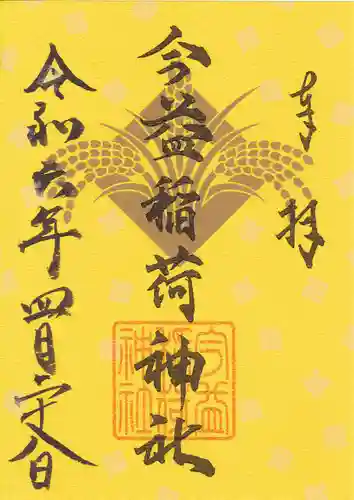 奉拝
今益稲荷神社
今益稲荷神社
令和六年四月二十八日